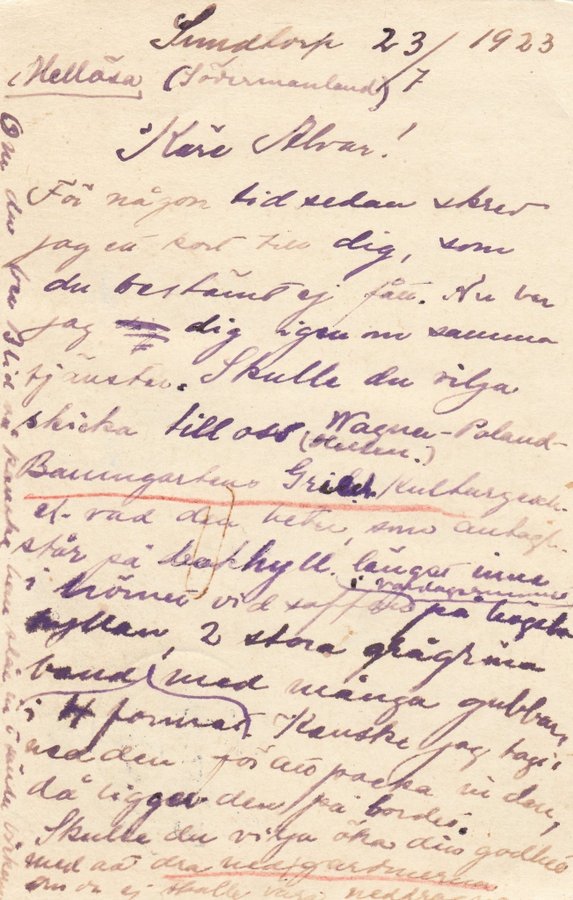 Sundtorp 23/7 1923
Mellösa (Södermanland)
Käre Alvar!
För någon tid sedan skrev
jag ett kort till dig, som
du bestämt ej fått. Nu ber
jag dig igen om samma
tjänster. Skulle du vilja
skicka till oss Wagner-Poland-
Baumgartens Kulturgesch.
el. vad den heter, som antagl.
står på bokhyll. längst inne
i hörnet vid soffan på högsta
i vardagsrummet
hyllan, 2 stora grågröna
band med många gubbar,
i 4 format. Kanske jag tagit
ned den för att packa in den,
då ligger den på bordet.
Skulle du vilja öka din godhet
med att dra ner gardinerna
om de ej skulle vara
Om du